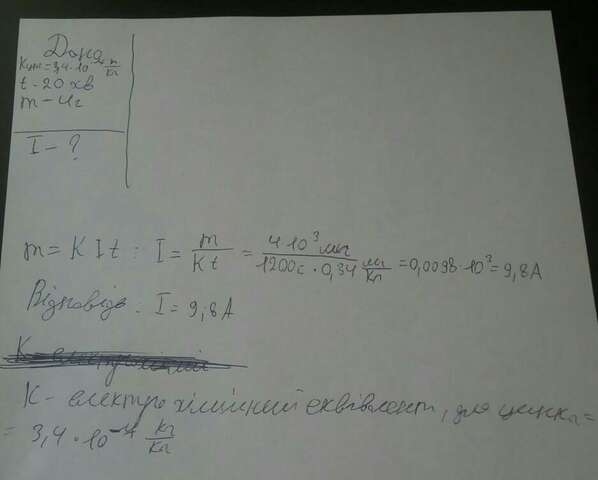 Дано
Кцин = 3,4·10⁻⁴ г/Кл
t - 20 хв
m - 4г
I - ?
m = K I t : I = m/Kt = 4·10³ мг / 1200с · 0,34 мг/Кл = 0,0098·10³ = 9,8 А
Відповідь: I = 9,8 А
К - електрохімічний еквівалент, для цинка =
= 3,4·10⁻⁴ кг/Кл